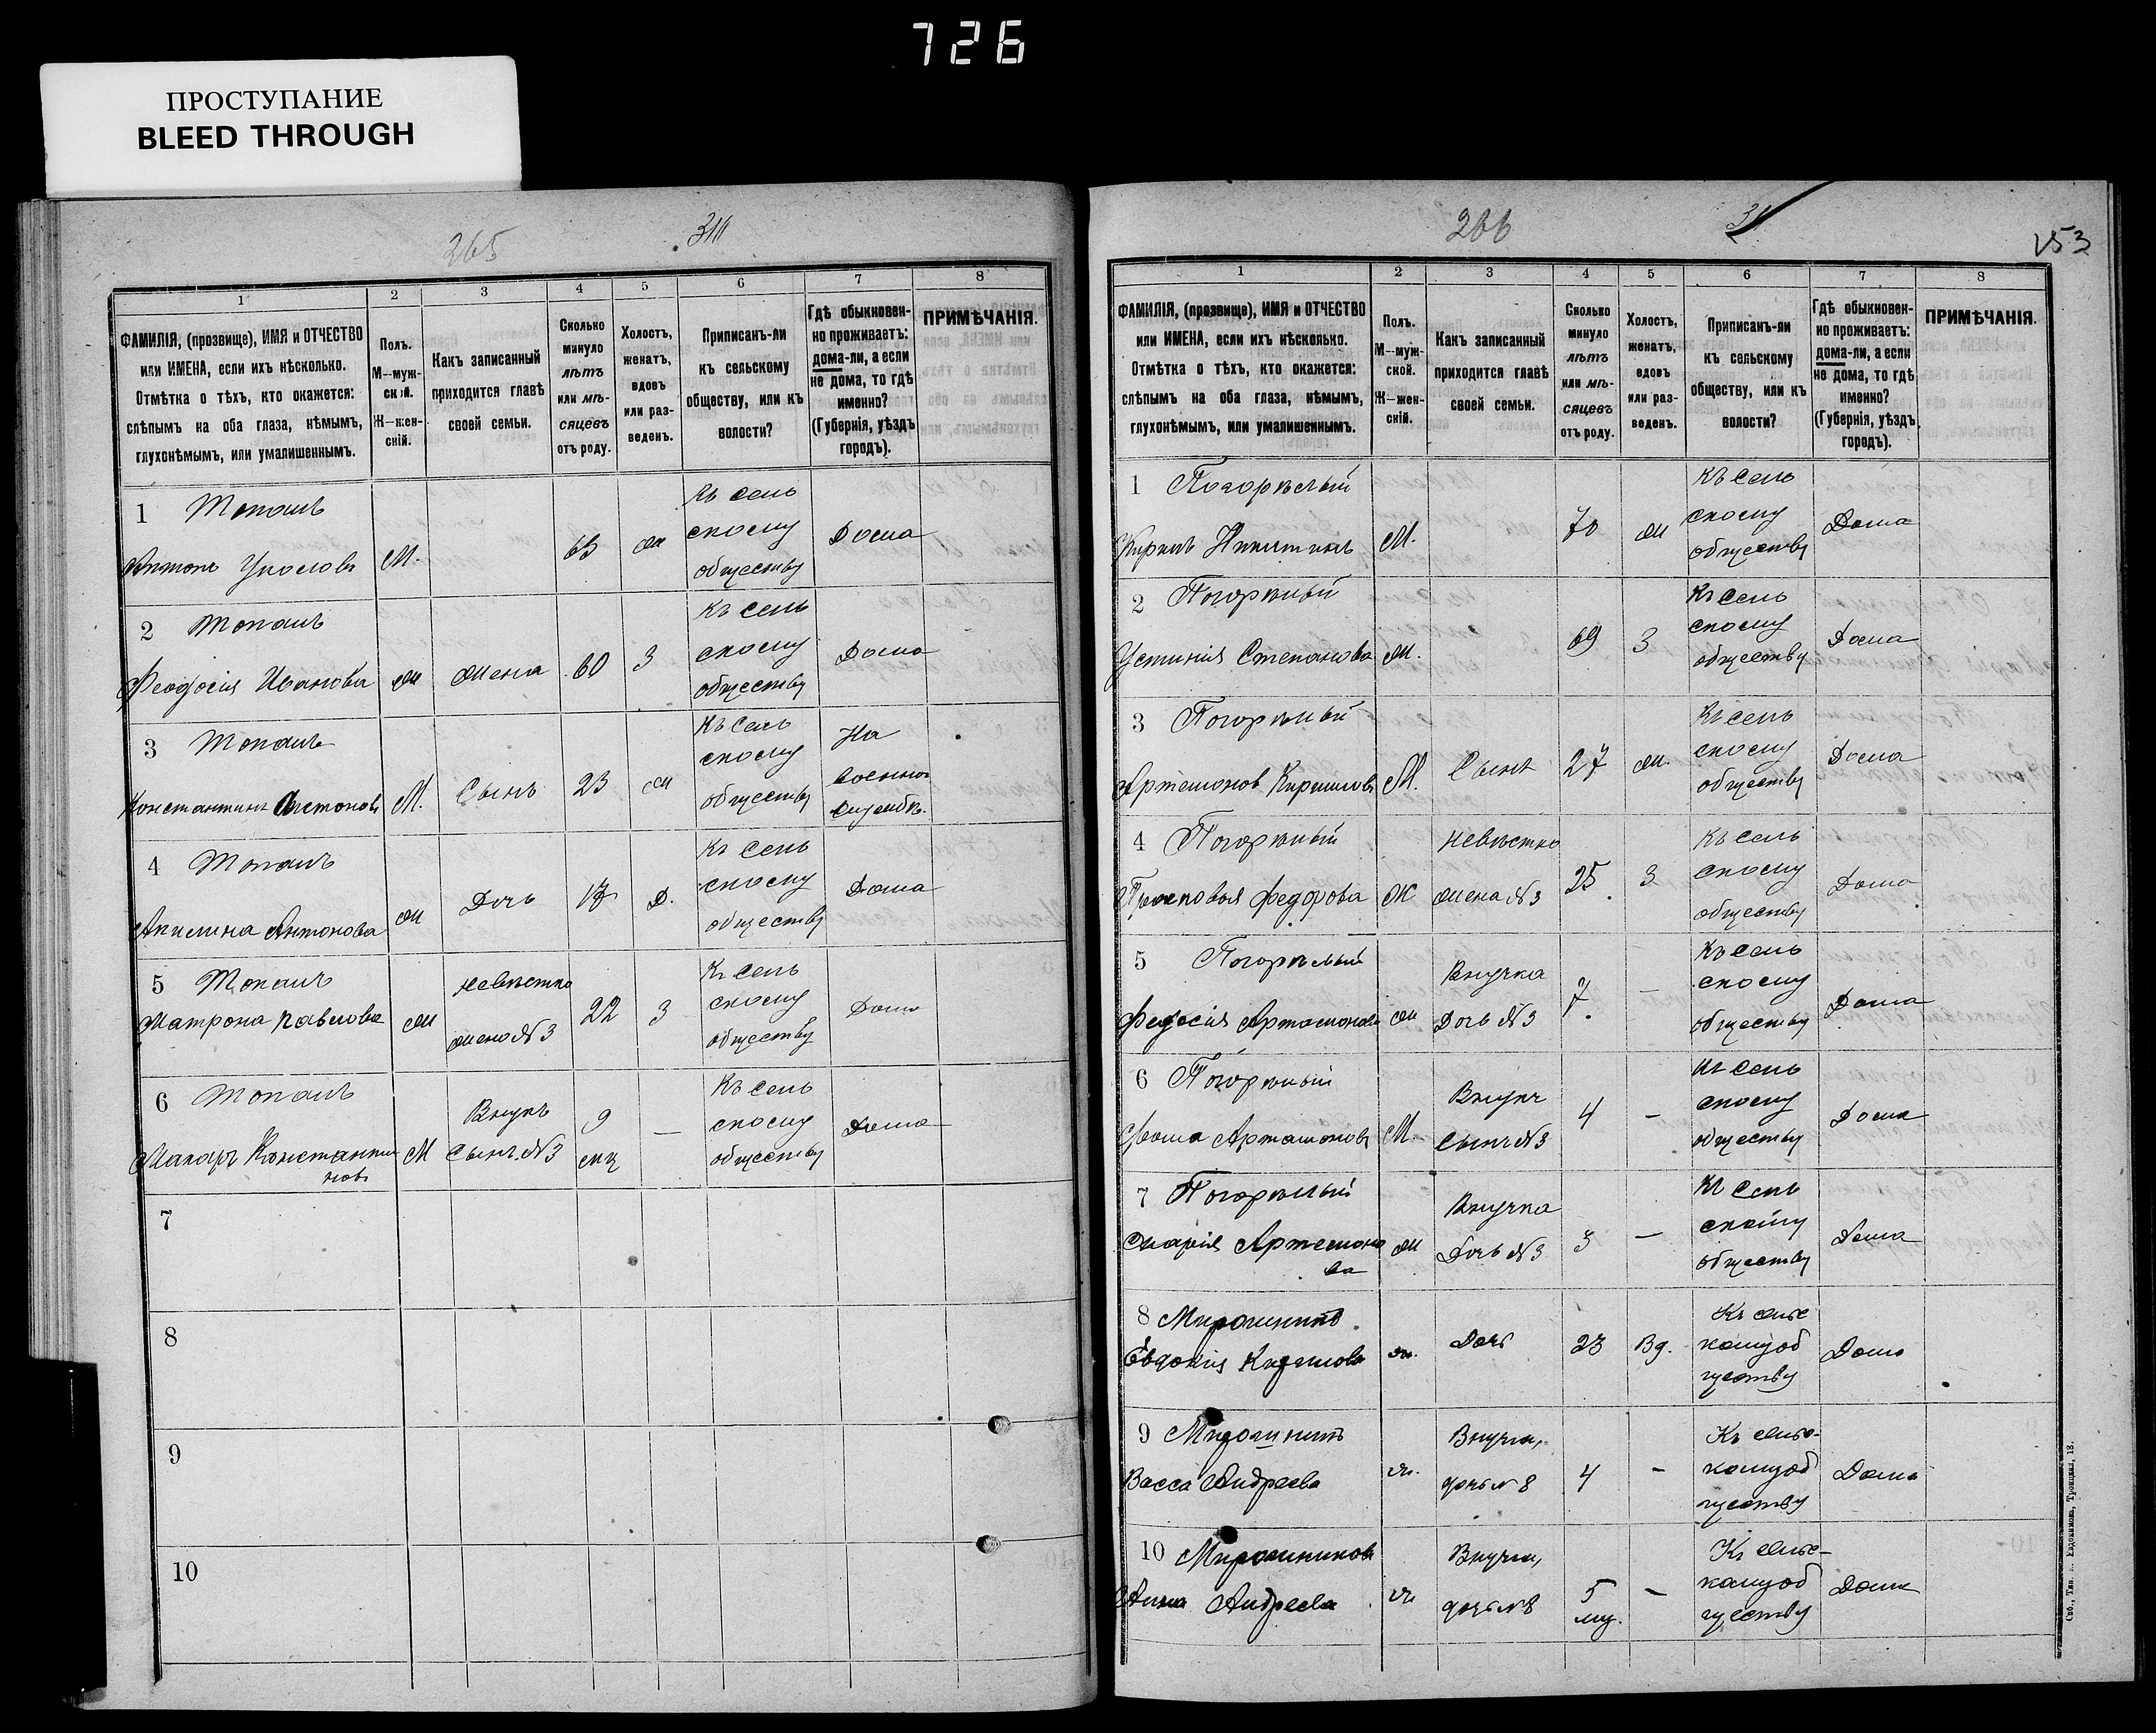 726
ПРОСТУПАНИЕ
BLEED THROUGH
265
310
1 2 3 4 5 6 7 8
ФАМИЛІЯ, (прозвище), ИМЯ и ОТЧЕСТВО
или ИМЕНА, если ихъ нѣсколько.
Отмѣтка о тѣхъ, кто окажется:
слѣпымъ на оба глаза, нѣмымъ,
глухонѣмымъ, или умалишеннымъ.
Полъ.
М—муж-
ской.
Ж—жен-
скій.
Какъ записанный
приходится главѣ
своей семьи.
Сколько
минуло
лѣтъ
или мѣ-
сяцевъ
отъ роду.
Холостъ,
женатъ,
вдовъ
или раз-
веденъ.
Приписанъ-ли
къ сельскому
обществу, или къ
волости?
Гдѣ обыкновен-
но проживаетъ:
дома-ли, а если
не дома, то гдѣ
именно?
(Губернія, уѣздъ
городъ).
ПРИМѢЧАНІЯ.
1 Топаль
Антонъ М. 65 ж Къ сель
скому
обществу
Дома
2 Топаль
Феодосія Иванова ж Жена 60 З Къ сель
скому
обществу
Дома
3 Топаль
Константинъ Антоновъ М. Сынъ 23 ж Къ сель
скому
обществу
На
военной
службѣ.
4 Топаль
Акилина Антонова ж Дочь 17 Д. Къ сель
скому
обществу
Дома
5 Топаль
Матрона Павлова ж Невѣстка
жена №3
22 З Къ сель
скому
обществу
Дома
6 Топаль
Макаръ Константи
новъ
М Внукъ
Сынъ №3
9
мц
— Къ сель
скому
обществу
Дома
7
8
9
10
266
153
1 2 3 4 5 6 7 8
ФАМИЛІЯ, (прозвище), ИМЯ и ОТЧЕСТВО
или ИМЕНА, если ихъ нѣсколько.
Отмѣтка о тѣхъ, кто окажется:
слѣпымъ на оба глаза, нѣмымъ,
глухонѣмымъ, или умалишеннымъ.
Полъ.
М—муж-
ской.
Ж—жен-
скій.
Какъ записанный
приходится главѣ
своей семьи.
Сколько
минуло
лѣтъ
или мѣ-
сяцевъ
отъ роду.
Холостъ,
женатъ,
вдовъ
или раз-
веденъ.
Приписанъ-ли
къ сельскому
обществу, или къ
волости?
Гдѣ обыкновен-
но проживаетъ:
дома-ли, а если
не дома, то гдѣ
именно?
(Губернія, уѣздъ
городъ).
ПРИМѢЧАНІЯ.
1 Погорѣлый
Кирилъ Никитинъ М. 70 ж Къ сель
скому
обществу
Дома
2 Погорѣлый
Устинія Степанова ж. 69 З Къ сель
скому
обществу
Дома
3 Погорѣлый
Артемонов Кириловъ М. Сынъ 27 ж. Къ сель
скому
обществу
Дома
4 Погорѣлый
Просковья Федорова Ж Невѣстка
жена №3
25 З Къ сель
скому
обществу
Дома
5 Погорѣлый
Федосія Артамонова ж Внучка
Дочь №3
7 — Къ сель
скому
обществу
Дома
6 Погорѣлый
Фома Артамоновъ М. Внукъ
Сынъ №3
4 — Къ сель
скому
обществу
Дома
7 Погорѣлый
Марія Артемоно
ва
ж Внучка
Дочь №3
3 — Къ сель
скому
обществу
Дома
8
Евдокія Кирилова ж. Дочь 23 Вд. Къ сельс
комуоб
ществу
Дома
9
Васса Андреева ж. Внучка,
дочь № 8
4 — Къ сельс-
комуоб
ществу
Дома
10
Анна Андреева ж Внучка,
дочь №8
5
мц.
— Къ сельс-
комуоб
ществу
Дома